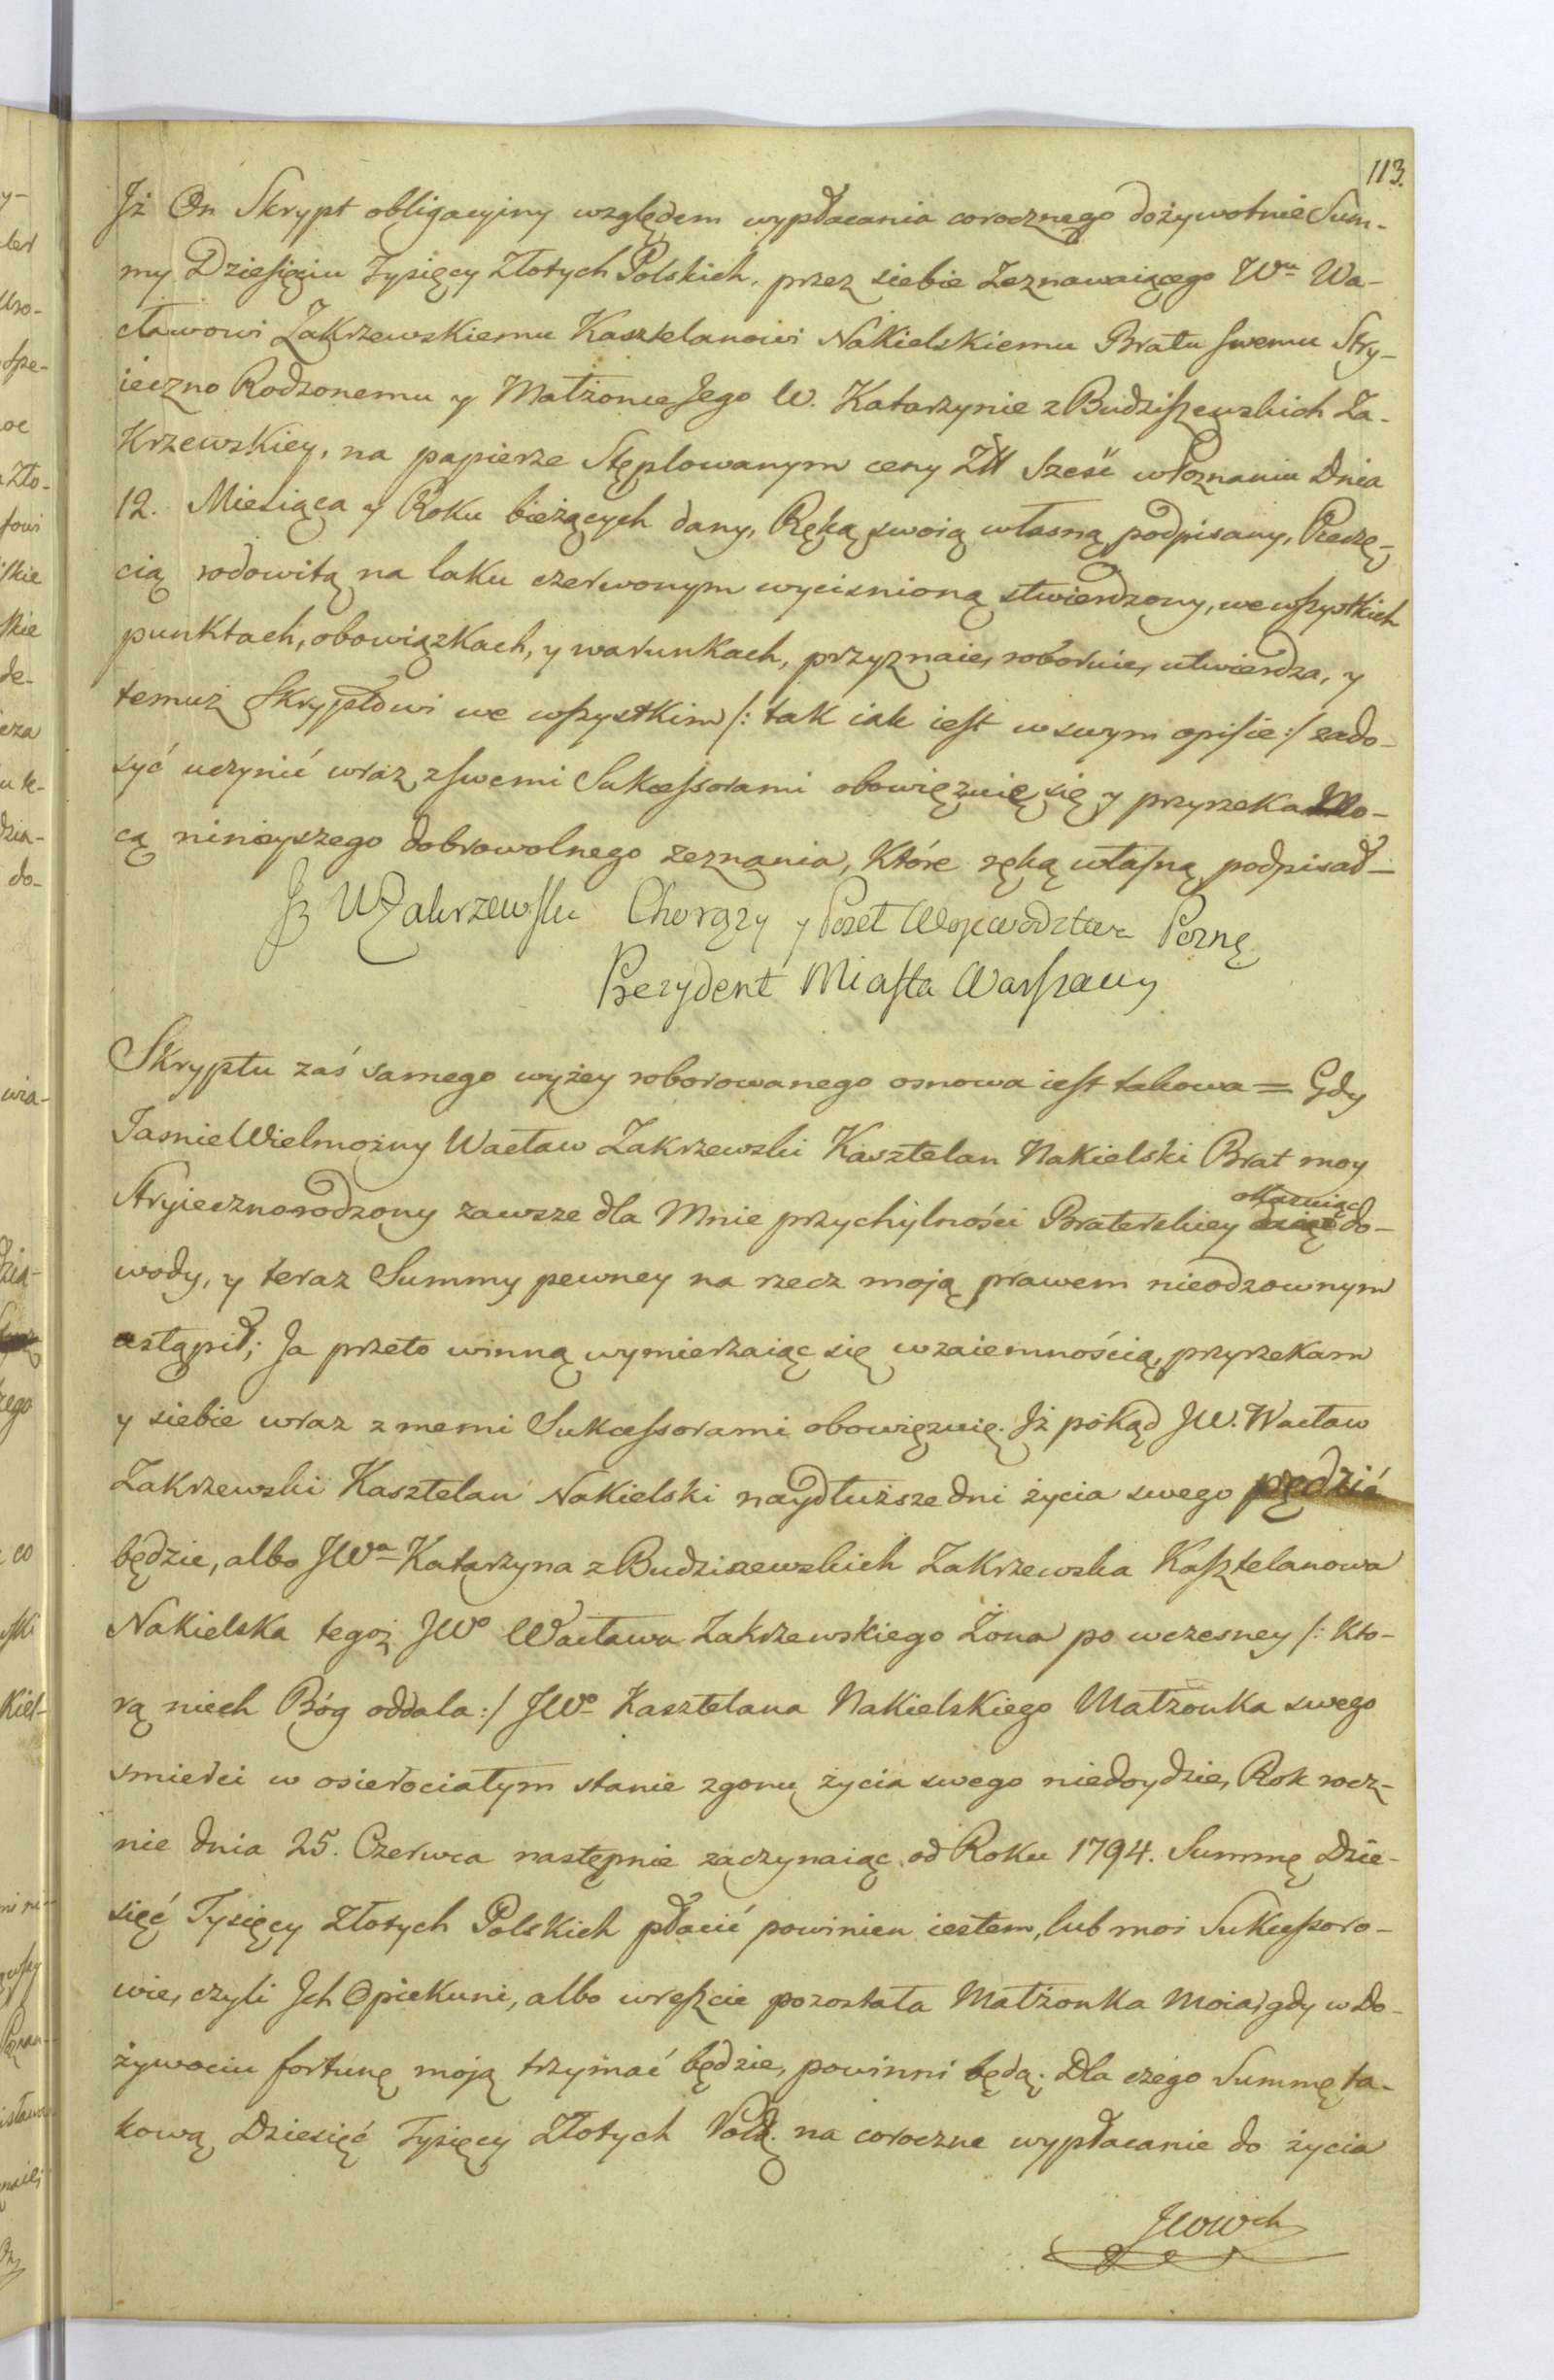 113.
Jż On Skrypt obligacyiny względem wypłacania corocznego dożywotnie Sum-
my Dziesięciu Tysięcy Złotych Polskich, przez siebie Zeznawaiącego Wu Wa-
cławowi Zakrzewskiemu Kasztelanowi Nakielskiemu Bratu swemu Stry-
ieczno Rodzonemu y Małżonce Jego W. Katarzynie z Budziszewskich Za-
Krzewskiey, na papierze Stęplowanym ceny Złł Sześć w Poznaniu Dnia
12. Miesiąca y Roku bieżących dany, Ręką swoią własną podpisany, Pieczę-
cią rodowitą na laku czerwonym wycisnioną stwierdzony, we wszystkich
punktach, obowiązkach, y warunkach, przyznaie, roboruie, utwierdza, y
temuż Skryptowi we wszystkim /: tak iak iest w swym opisie :/ zado-
syć uczynić wraz z swemi Sukcessorami obowięzuię się y przyrzeka Mo-
cą ninieyszego dobrowolnego zeznania, Które ręką własną podpisał –
JWZakrzewski Chorąży y Poseł Wojewodztwa Pozną
Prezydent Miasta Warszawy
Skryptu zaś samego wyżey roborowanego osnowa iest takowa = Gdy
JasnieWielmożny Wacław Zakrzewski Kasztelan Nakielski Brat moy
Stryiecznorodzony zawsze dla Mnie przychylności Braterskiey okazuiąc do-
wody, y teraz Summy pewney na rzecz moją prawem nieodzownym
ustąpił; Ja przeto winną wymierzaiąc się wzaiemnością, przyrzekam
y siebie wraz z memi Sukcessorami obowięzuię. Jż pókąd JW. Wacław
Zakrzewski Kasztelan Nakielski naydłuższe dni życia swego pędzić
będzie, albo JWa Katarzyna z Budziszewskich Zakrzewska Kasztelanowa
Nakielska tegoż JWo Wacława Zakrzewskiego Żona po wczesney /: Kto-
rą niech Bóg oddala :/ JWo Kasztelana Nakielskiego Małżonka swego
smierci w osierociałym stanie zgonu życia swego niedoydzie, Rok rocz-
nie dnia 25. Czerwca następnie zaczynaiąc od Roku 1794. Summę Dzie-
sięć Tysięcy Złotych Polskich płacić powinien iestem, lub moi Sukcessoro-
wie, czyli Jch Opiekuni, albo wreszcie pozostała Małżonka Moia gdy w Do-
żywociu fortunę moją trzymać będzie, powinni będą. Dla czego Summę ta-
kową Dziesięć Tysięcy Złotych Polk. na coroczne wypłacanie do życia
JWWch